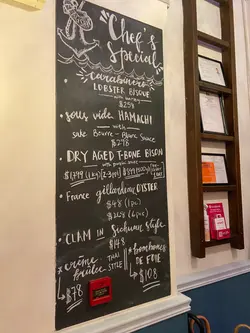 Chef's
Special
carabinero
LOBSTER BISQUE
$258
• sous vide HAMACHI
with
sake Beurre-Blanc Sauce
$298
• DRY AGED T-BONE BISON
$1,499 (1kg) [2-3ppl]
• France gillardeau OYSTER
$48 (1pc)
$268 (6pc)
• CLAM in Sichuan style
$148
* crème
brûlée
$78
THAI
STYLE
* bonbons
DE FOIE
$108